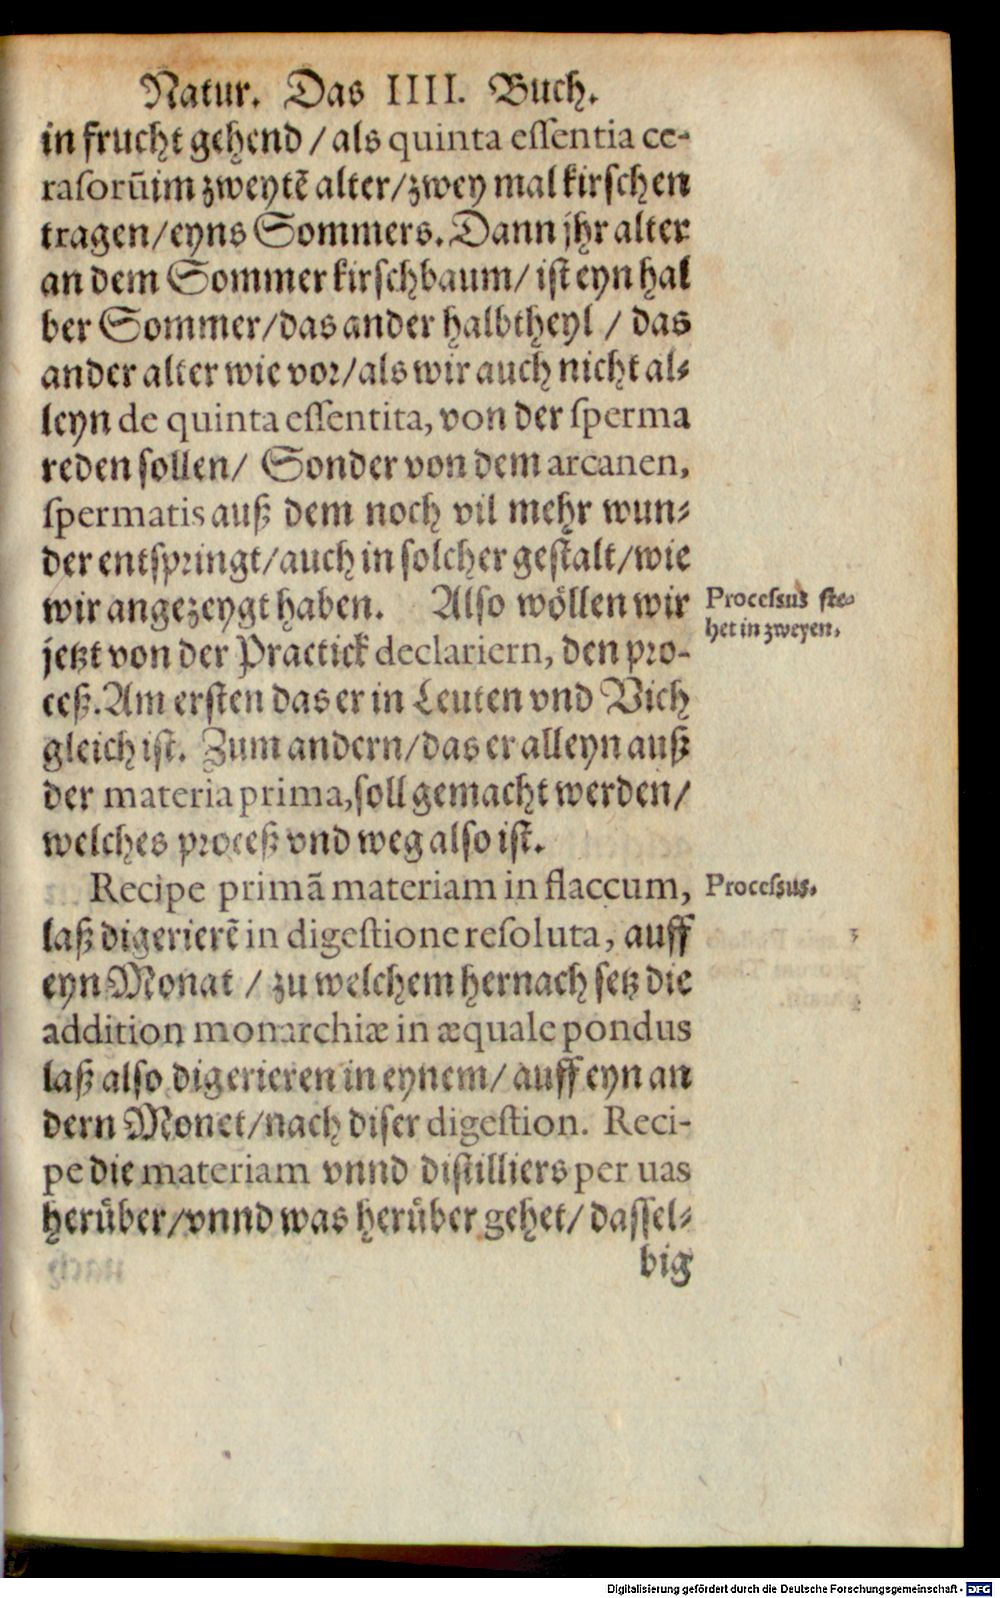 Natur. Das IIII. Buch.
in frucht gehend / als quinta essentia ce-
rasorūim zweytē alter/zwey mal kirschen
tragen/eyns Sommers. Dann jhr alter
an dem Sommer kirschbaum/ ist eyn hal
ber Sommer/das ander halbtheyl / das
ander alter wie vor/als wir auch nicht al-
leyn de quinta essentita, von der sperma
reden sollen/ Sonder von dem arcanen,
spermatis auß dem noch vil mehr wun-
der entspringt/auch in solcher gestalt/wie
wir angezeygt haben. Also wöllen wir
Processus ste-
het in zweyen.
jetzt von der Practick declariern, den pro-
ceß. Am ersten das er in Leuten vnd Vich
gleich ist. Zum andern/das er alleyn auß
der materia prima, soll gemacht werden/
welches proceß vnd weg also ist.
Recipe primā materiam in flaccum,
Processus.
laß digerierē in digestione resoluta, auff
eyn Monat / zu welchem hernach setz die
addition monarchiæ in æquale pondus
laß also digerieren in eynem/ auff eyn an
dern Monet/nach diser digestion. Reci-
pe die materiam vnnd distilliers per uas
herüber/vnnd was herüber gehet/ dassel-
big
Digitalisierung gefördert durch die Deutsche Forschungsgemeinschaft - DFG